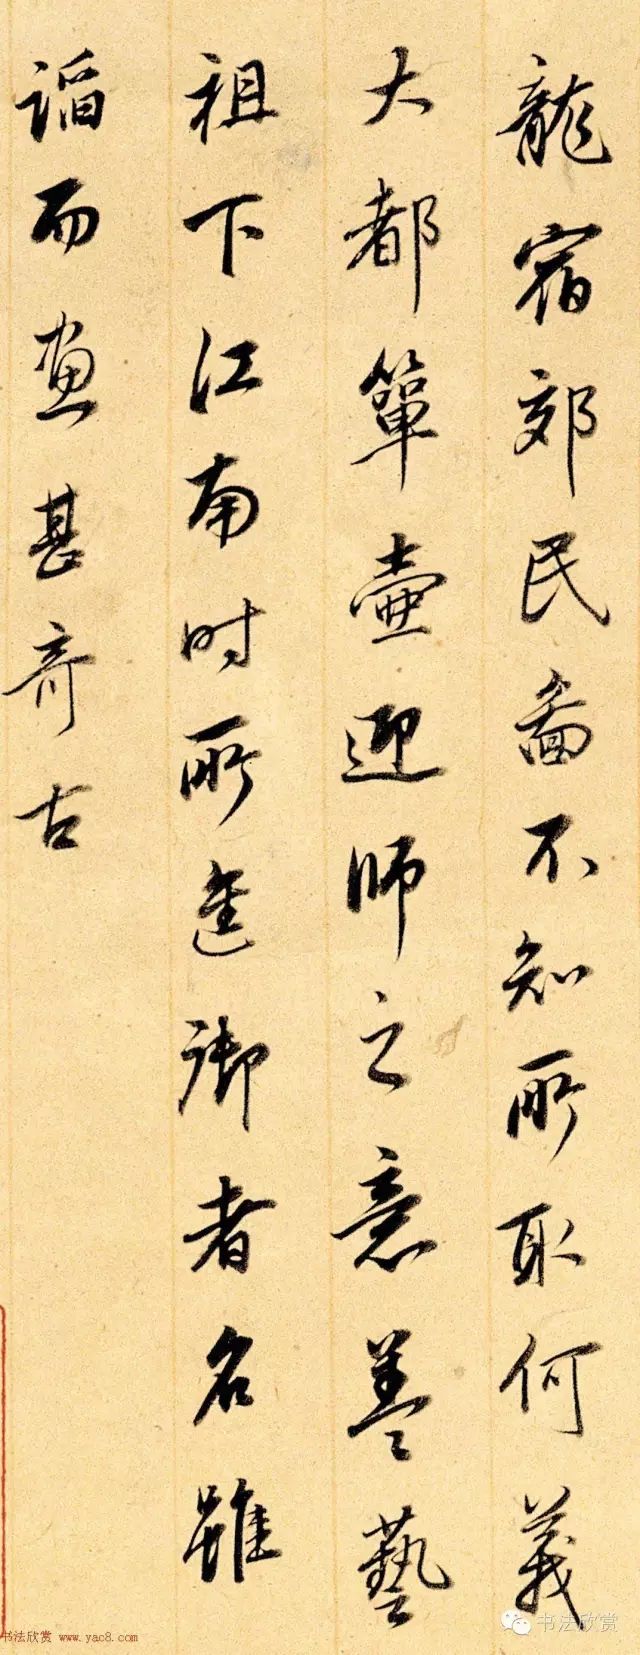 龍宿郊民圖不知所取何義
大都簞壺迎師之意蓋藝
祖下江南時所進御者名雖
謟而画甚奇古
书法欣赏
书法欣赏 www.yac8.com